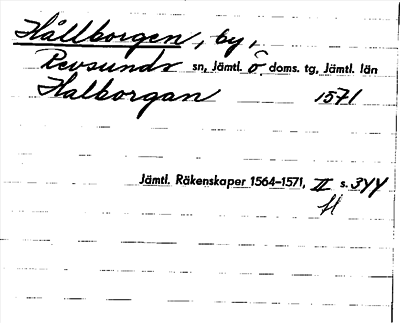 Hållborgen, by,
Revsunds sn, Jämtl. ö. doms. tg, Jämtl. län
Halborgan 1571
Jämtl. Räkenskaper 1564-1571, II s. 344